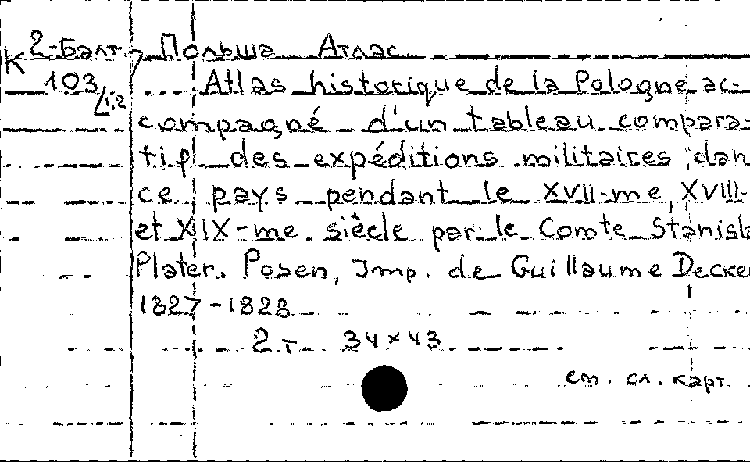 К 2-Балт Польша Атлас
103/1,2 Atlas historique de la Pologne ac-
compagné d'un tableau compara-
tif des expéditions militaires dan
ce pays pendant le XVII-me, XVIII-
et XIX-me siècle par le Comte Stanisla
Plater. Posen, Imp. de Guillaume Decker
1827-1828
2 т 34×43
см. сл. карт.